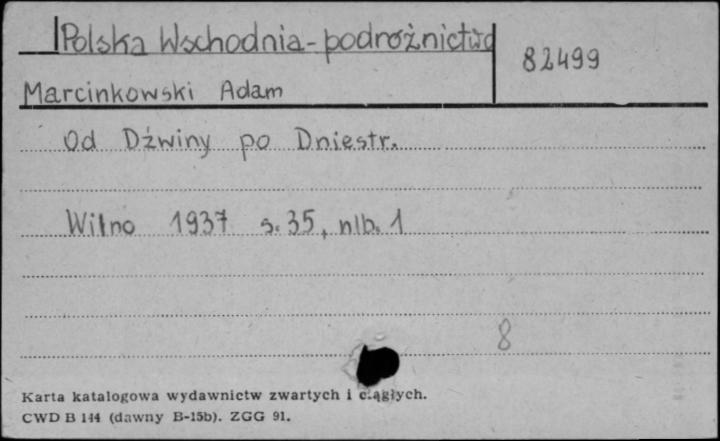 Polska Wschodnia - podróżnictwo
82499
Marcinkowski Adam
Od Dźwiny po Dniestr.
Wilno 1937 s. 35, nlb. 1
8
Karta katalogowa wydawnictw zwartych i ciągłych.
CWD B 144 (dawny B-15b). ZGG 91.